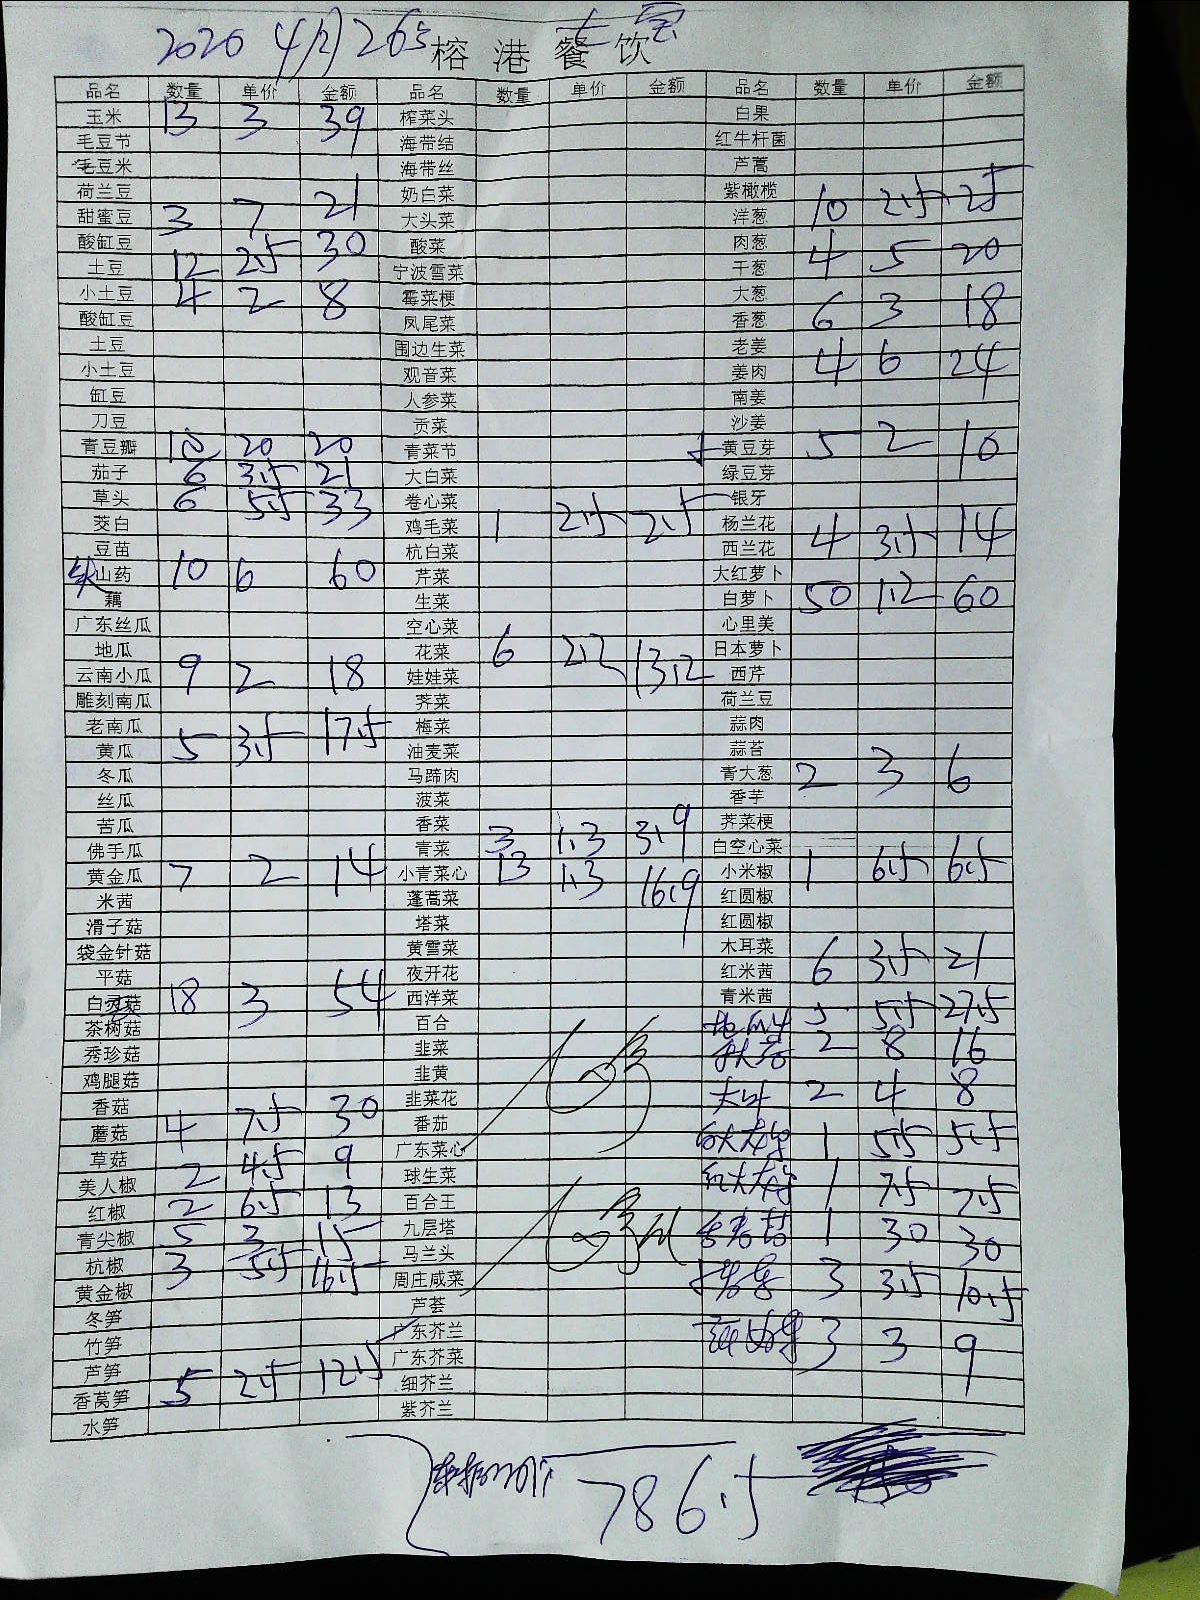 2020 4月26日
榕港餐饮
品名 数量 单价 金额 品名 数量 单价 金额 品名 数量 单价 金额
玉米 13 3 39 榨菜头 白果
毛豆节 海带结 红牛杆菌
毛豆米 海带丝 芦蒿
荷兰豆 奶白菜 紫橄榄
甜蜜豆 3 7 21 大头菜 洋葱 10 2.5 25
酸缸豆 酸菜 肉葱
土豆 12 2.5 30 宁波雪菜 干葱 4 5 20
小土豆 4 2 8 霉菜梗 大葱
酸缸豆 凤尾菜 香葱 6 3 18
土豆 围边生菜 老姜
小土豆 观音菜 姜肉 4 6 24
缸豆 人参菜 南姜
刀豆 贡菜 沙姜
青豆瓣 10 20 20 青菜节 黄豆芽 5 2 10
茄子 6 3.5 21 大白菜 绿豆芽
草头 6 5.5 33 卷心菜 银牙
茭白 鸡毛菜 1 2.5 2.5 杨兰花
豆苗 杭白菜 西兰花 4 3.5 14
山药 10 6 60 芹菜 大红萝卜
藕 生菜 白萝卜 50 1.2 60
广东丝瓜 空心菜 心里美
地瓜 花菜 6 2.2 13.2 日本萝卜
云南小瓜 9 2 18 娃娃菜 西芹
雕刻南瓜 荠菜 荷兰豆
老南瓜 梅菜 蒜肉
黄瓜 5 3.5 17.5 油麦菜 蒜苔
冬瓜 马蹄肉 青大葱 2 3 6
丝瓜 菠菜 香芋
苦瓜 香菜 荠菜梗
佛手瓜 青菜 3 1.3 3.9 白空心菜
黄金瓜 7 2 14 小青菜心 13 1.3 16.9 小米椒 1 6.5 6.5
米茜 蓬蒿菜 红圆椒
滑子菇 塔菜 红圆椒
袋金针菇 黄雪菜 木耳菜
平菇 夜开花 红米茜 6 3.5 21
白灵菇 18 3 54 西洋菜 青米茜
茶树菇 百合 5 5.5 27.5
秀珍菇 韭菜 2 8 16
鸡腿菇 韭黄
香菇 韭菜花 2 4 8
蘑菇 4 7.5 30 番茄
草菇 广东菜心 1 5.5 5.5
美人椒 2 4.5 9 球生菜
红椒 2 6.5 13 百合王 1 7.5 7.5
青尖椒 5 3 15 九层塔 1 30 30
杭椒 3 5.5 16.5 马兰头
黄金椒 周庄咸菜 3 3.5 10.5
冬笋 芦荟
竹笋 广东芥兰 3 3 9
芦笋 广东芥菜
香莴笋 5 2.5 12.5 细芥兰
水笋 紫芥兰
786.5